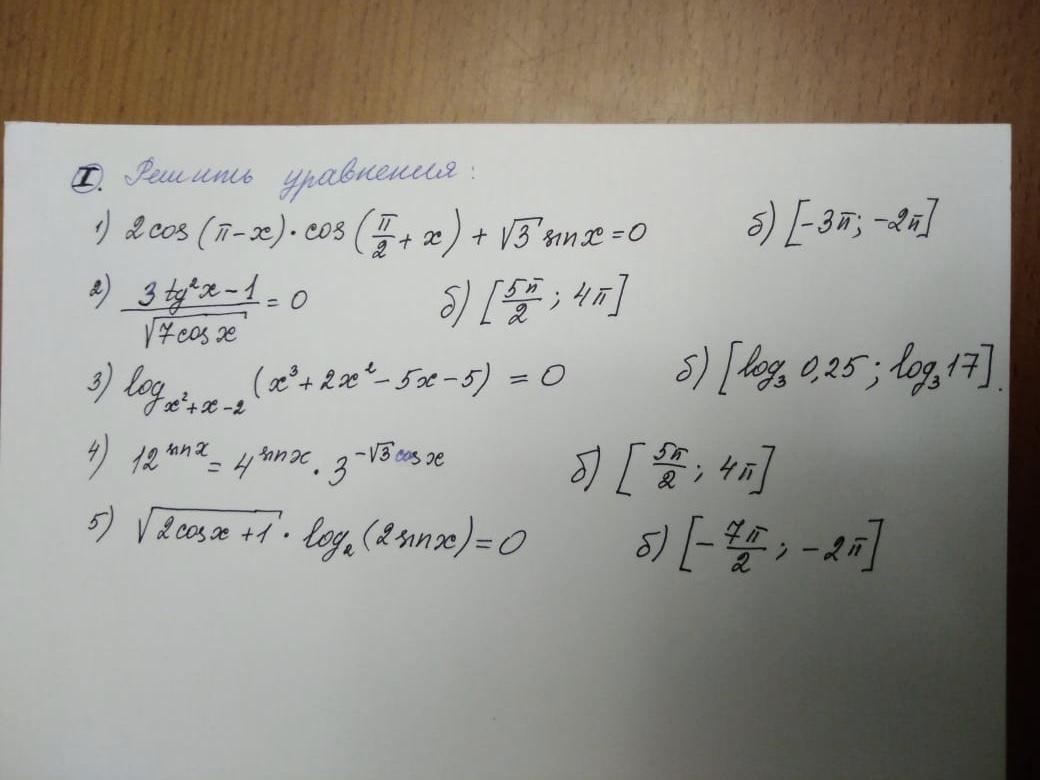 I. Решить уравнения:
1) 2cos(π-x)·cos(π/2+x)+√3 sinx=0 б) [-3π; -2π]
2) (3tg²x-1)/√(7cosx) = 0 б) [5π/2; 4π]
3) log_{x²+x-2}(x³+2x²-5x-5) = 0 б) [log₃0,25; log₃17].
4) 12^{sinx} = 4^{sinx}·3^{-√3cosx} б) [5π/2; 4π]
5) √(2cosx+1)·log₂(2sinx)=0 б) [-7π/2; -2π]